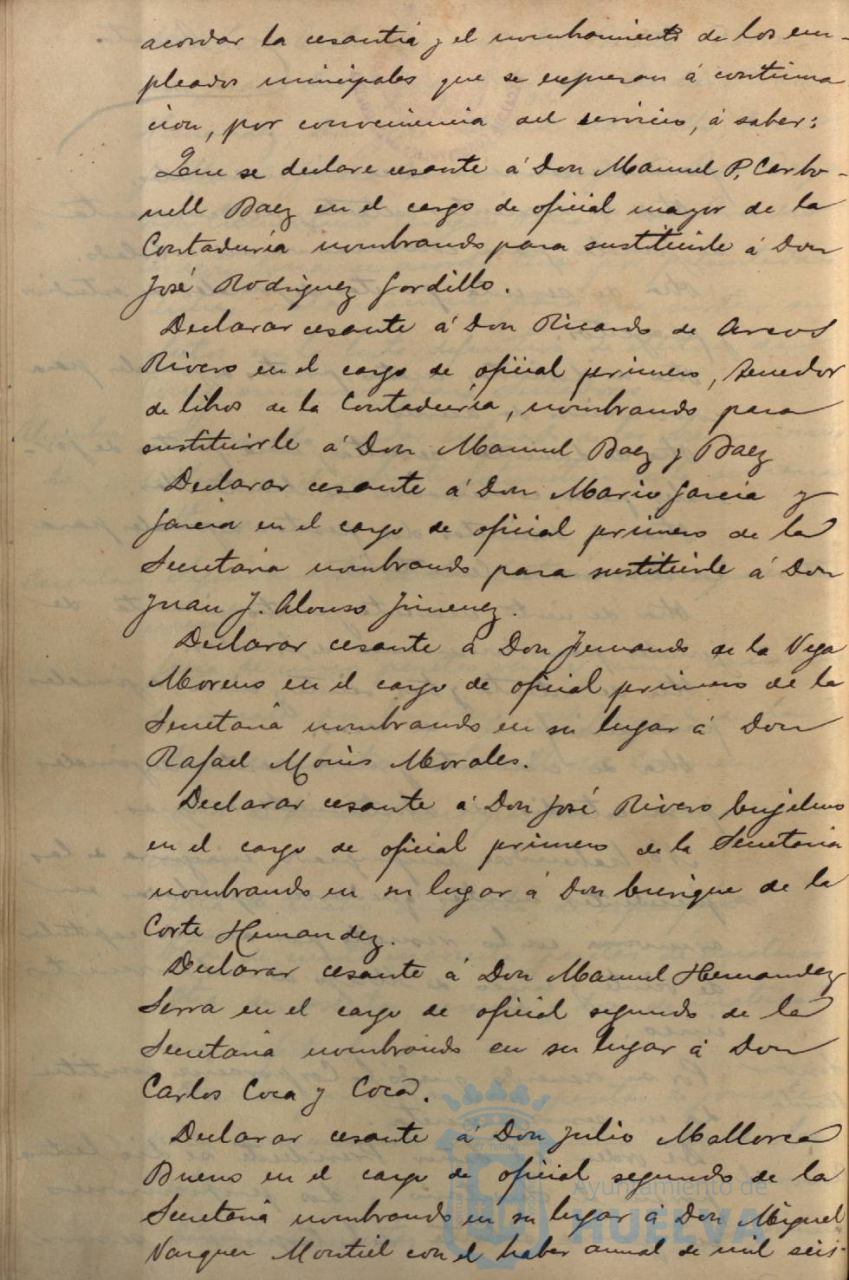 acordar la cesantia y el nombramiento de los em-
pleados municipales que se expresan á continua
cion, por conveniencia del servicio, á saber:
Que se declare cesante á Don Manuel P. Carbo-
nell Baez en el cargo de oficial mayor de la
Contaduría nombrando para sustituirle á Don
José Rodriguez Gordillo.
Declarar cesante á Don Ricardo de Arcos
Rivero en el cargo de oficial primero, tenedor
de libros de la Contaduría, nombrando para
sustituirle á Don Manuel Baez y Baez
Declarar cesante á Don Mario Garcia y
Garcia en el cargo de oficial primero de la
Secretaria nombrando para sustituirle á Don
Juan J. Alonso Jimenez.
Declarar cesante á Don Fernando de la Vega
Moreno en el cargo de oficial primero de la
Secretaria nombrando en su lugar á Don
Rafael Morales.
Declarar cesante á Don José Rivero
en el cargo de oficial primero de la Secretaria
nombrando en su lugar á Don Enrique de la
Corte Hernandez.
Declarar cesante á Don Manuel Hernandez
Serra en el cargo de oficial segundo de la
Secretaria nombrando en su lugar á Don
Carlos Coca y Coca.
Declarar cesante á Don Julio Mallorca
Bueno en el cargo de oficial segundo de la
Secretaria nombrando en su lugar á Don Miguel
Vazquez Montiel con el haber anual de mil seis-
Ayuntamiento de
HUELVA